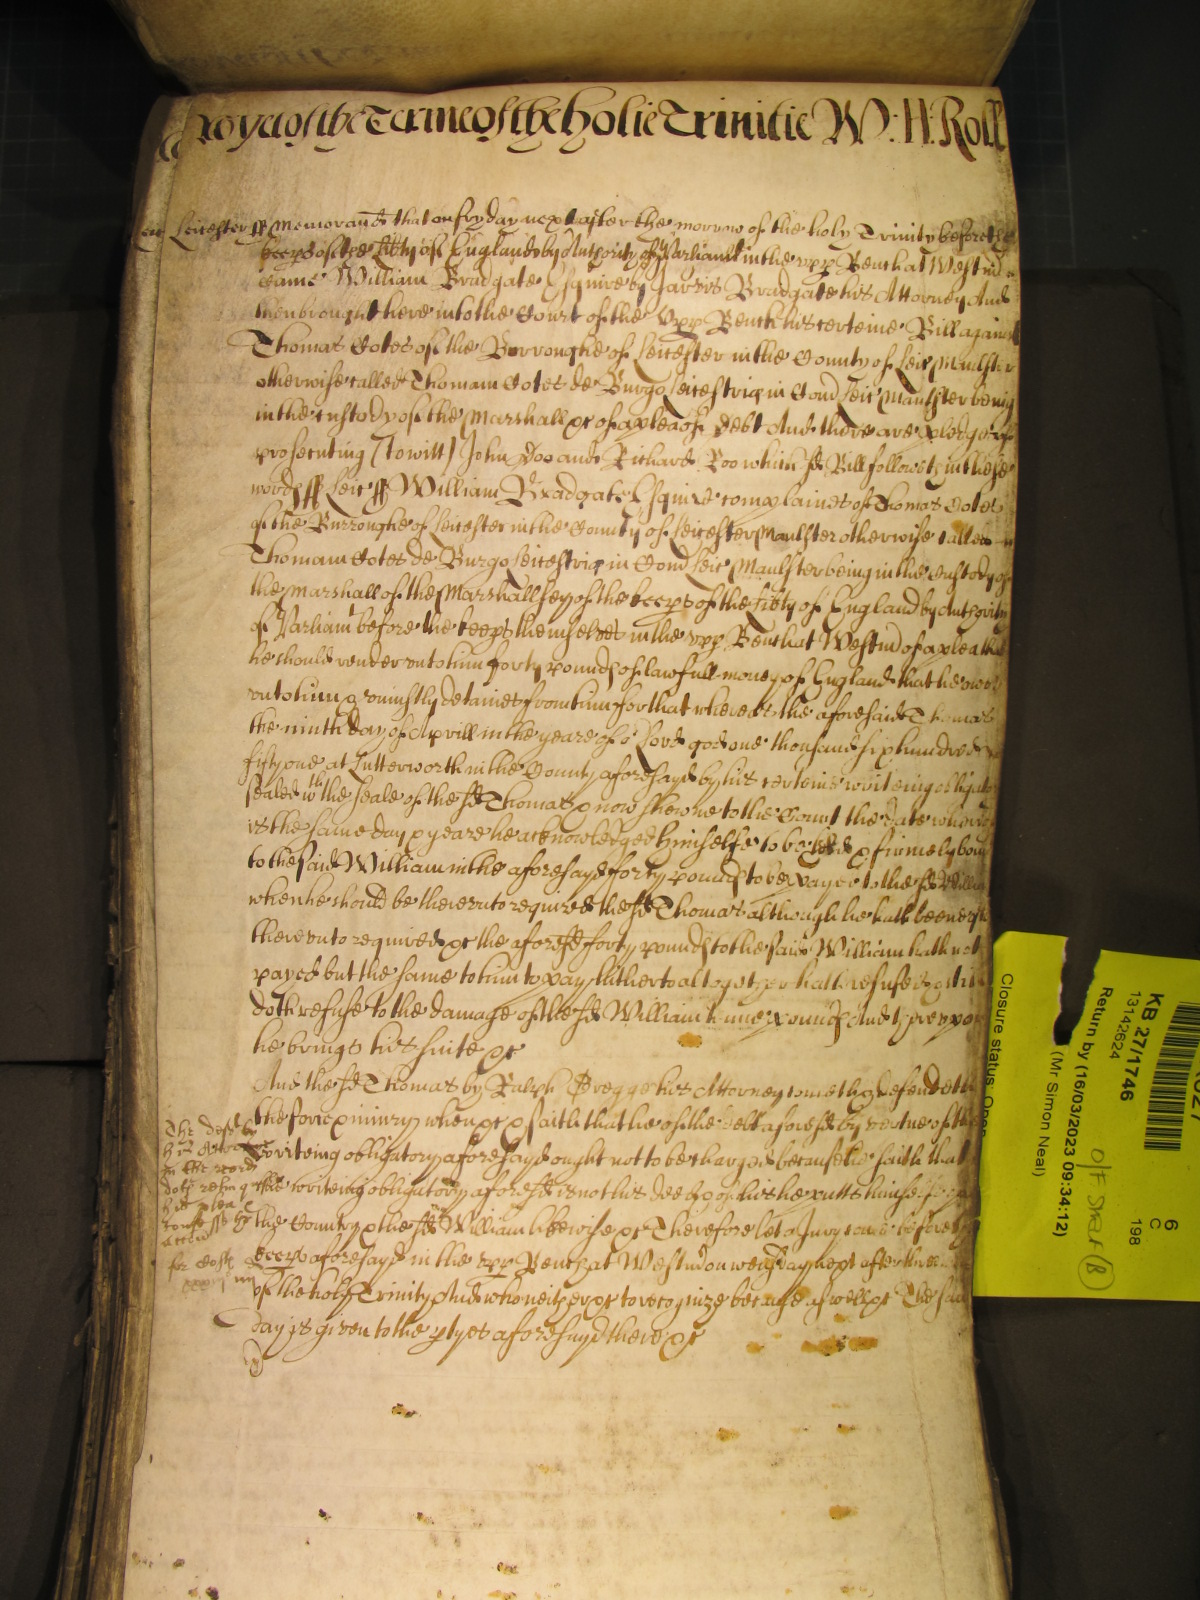 yet of the Terme of the holie Trinitie W: H: Roll
Leicester ss Memorand that on fryday next after the morrow of the holy Trinity before the
keeps of the libty of England by Authority of Parliamt in the upp Bench at Westm
came William Bradgate Esquire by Jarvis Bradgate his Attorney And
then brought here into the Court of the Upp Bench his certeine Bill against
Thomas Cotes of the Burroughe of Leicester in the County of Leic Maulster
otherwise called Thomam Cotes de Burgo Leicestrie in Com Leic Maulster being
in the custody of the Marshall &c of a plea of Debt And there are pledges of
prosecuting [to witt] John Doo and Richard Roo which sd Bill followeth in these
words ss Leic ss William Bradgate Esquire complaines of Thomas Cotes
of the Burroughe of Leicester in the County of Leicester Maulster otherwise called
Thomam Cotes de Burgo Leicestrie in Com Leic Maulster being in the Custody of
the Marshall of the Marshallsey of the keeps of the libty of England by Authority
of Parliamt before the keeps themselves in the upp Bench at Westm of a plea that
he should render unto him forty pounds of lawfull money of England that he owes
unto him & uniustly detaines from him for that whereas the aforesaid Thomas
the ninth day of Aprill in the yeare of or Lord god one thousand six hundred
fifty one at Lutterworth in the County aforesayd by his certeine writeing obligatory
sealed wth the seale of the sd Thomas & now shewne to the Court the date whereof
is the same day & yeare he acknowledged himselfe to be & firmely bound
to the said William in the aforesayd forty pounds to be payed to the sd William
when he should be thereunto required the sd Thomas although he hath beene
thereunto required &c the aforesd forty pounds to the said William hath not
payed but the same to him to pay hitherto altogether hath refused &
doth refuse to the damage of the sd William pounds And thereupon
he brings his suite &c
And the sd Thomas by Ralph Gregge his Attorney cometh & defendeth
the force & iniury when &c & saith that he of the debt aforesd by vertue of the
writeing obligatory aforesayd ought not to be charged because he saith that
the writeing obligatory aforesd is not his deed & of this he putts himself
the Country & the sd William likewise &c Therefore let a Jury come before
keeps aforesayd in the upp Bench at Westm on wensday next after three
of the holy Trinity And who neither &c to recognize because as well &c The same
day is given to the ptyes aforesayd there &c
The
in the record
his plea
KB 27/1746
13142624
Return by (16/03/2023 09:34:12)
(Mr Simon Neal)
Closure status: Open
6
C
198